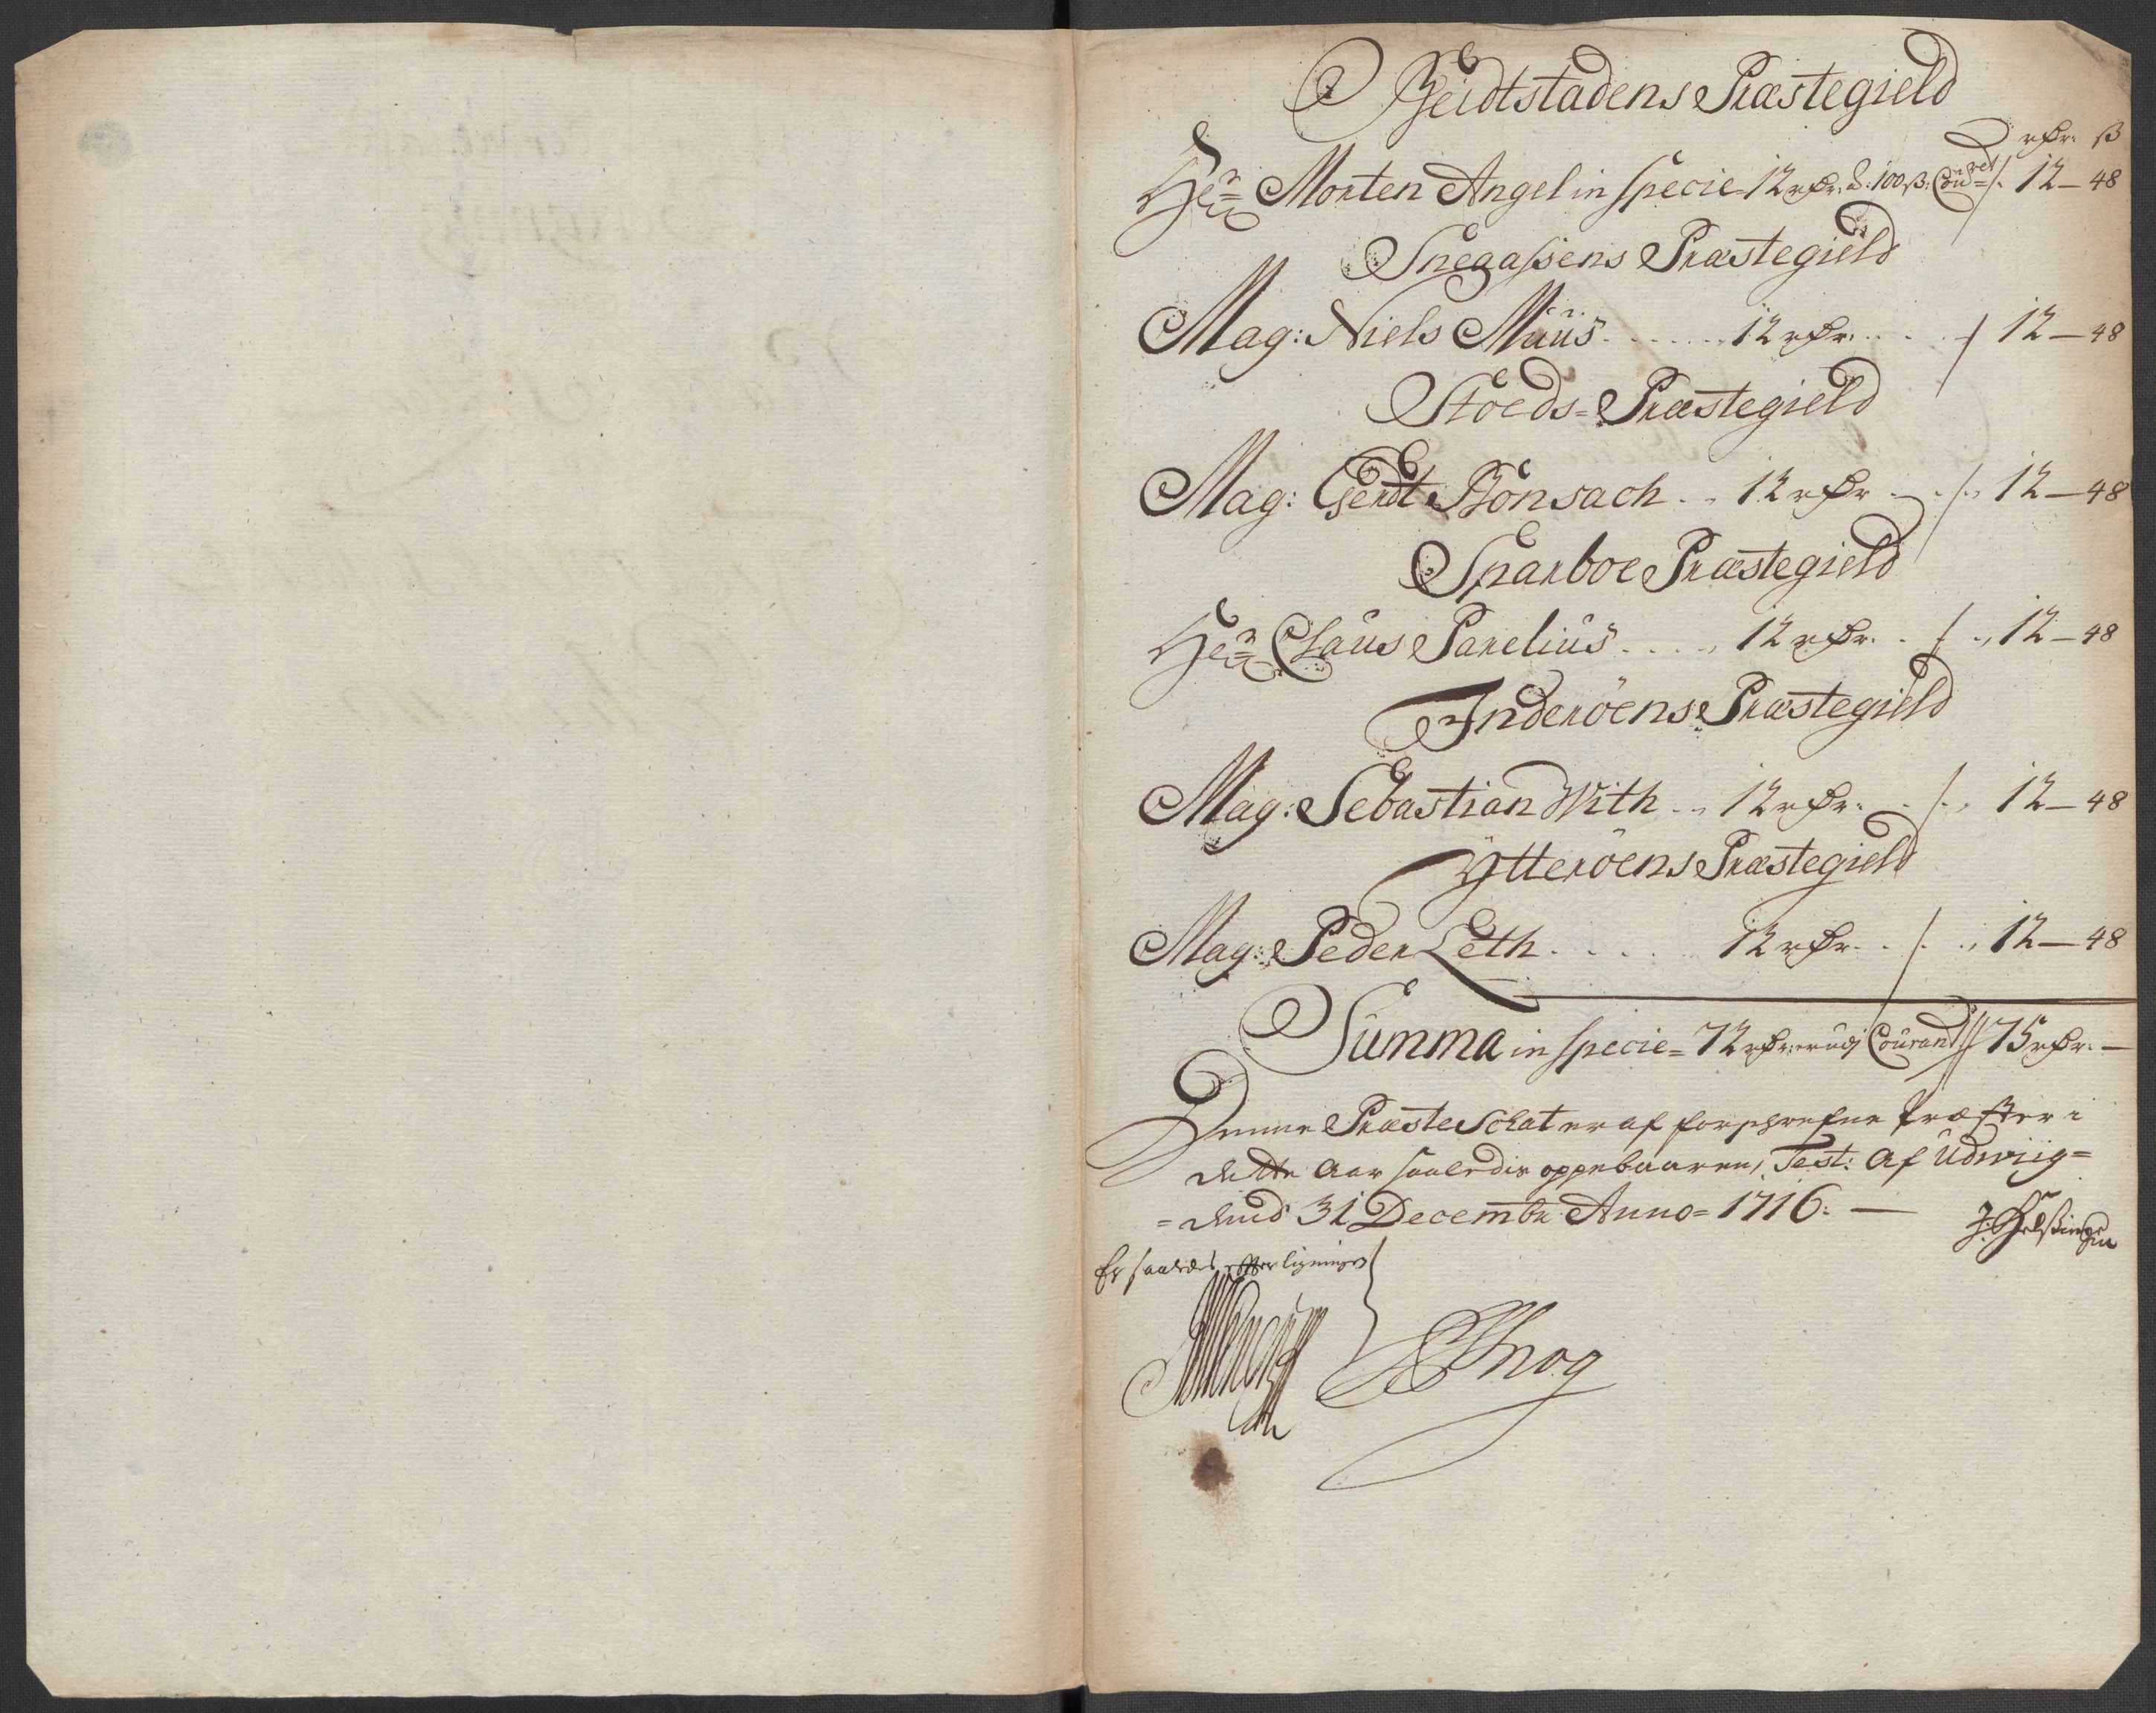 Beidtstadens Præstegield
rdr: ß
Her Morten Angel in specie 12 rdr: à 100 ß: Cour 12 – 48
Snegaßens Præstegield
Mag: Niels Muus . . . . . 12 rdr: . . . . 12 – 48
Stoeds = Præstegield
Mag: Gerdt Bonsach . . 12 rdr . . . 12 – 48
Sparboe Præstegield
Her Claus Parelius . . . . 12 rdr: . . . 12 – 48
Inderöens Præstegield
Mag: Sebastian With . . 12 rdr: . . . 12 – 48
Ytteröens Præstegield
Mag: Peder Leth . . . . . 12 rdr . . . 12 – 48
Summa in specie = 72 rdr: er udj Courant 75 rdr: –
Denne Præste Schat er af forschrefne Præster i
dette Aar saaledis oppebaaren, Test: Af Udwiig=
= dend 31 Decembr: Anno = 1716: —
Er saaledes effter ligningen